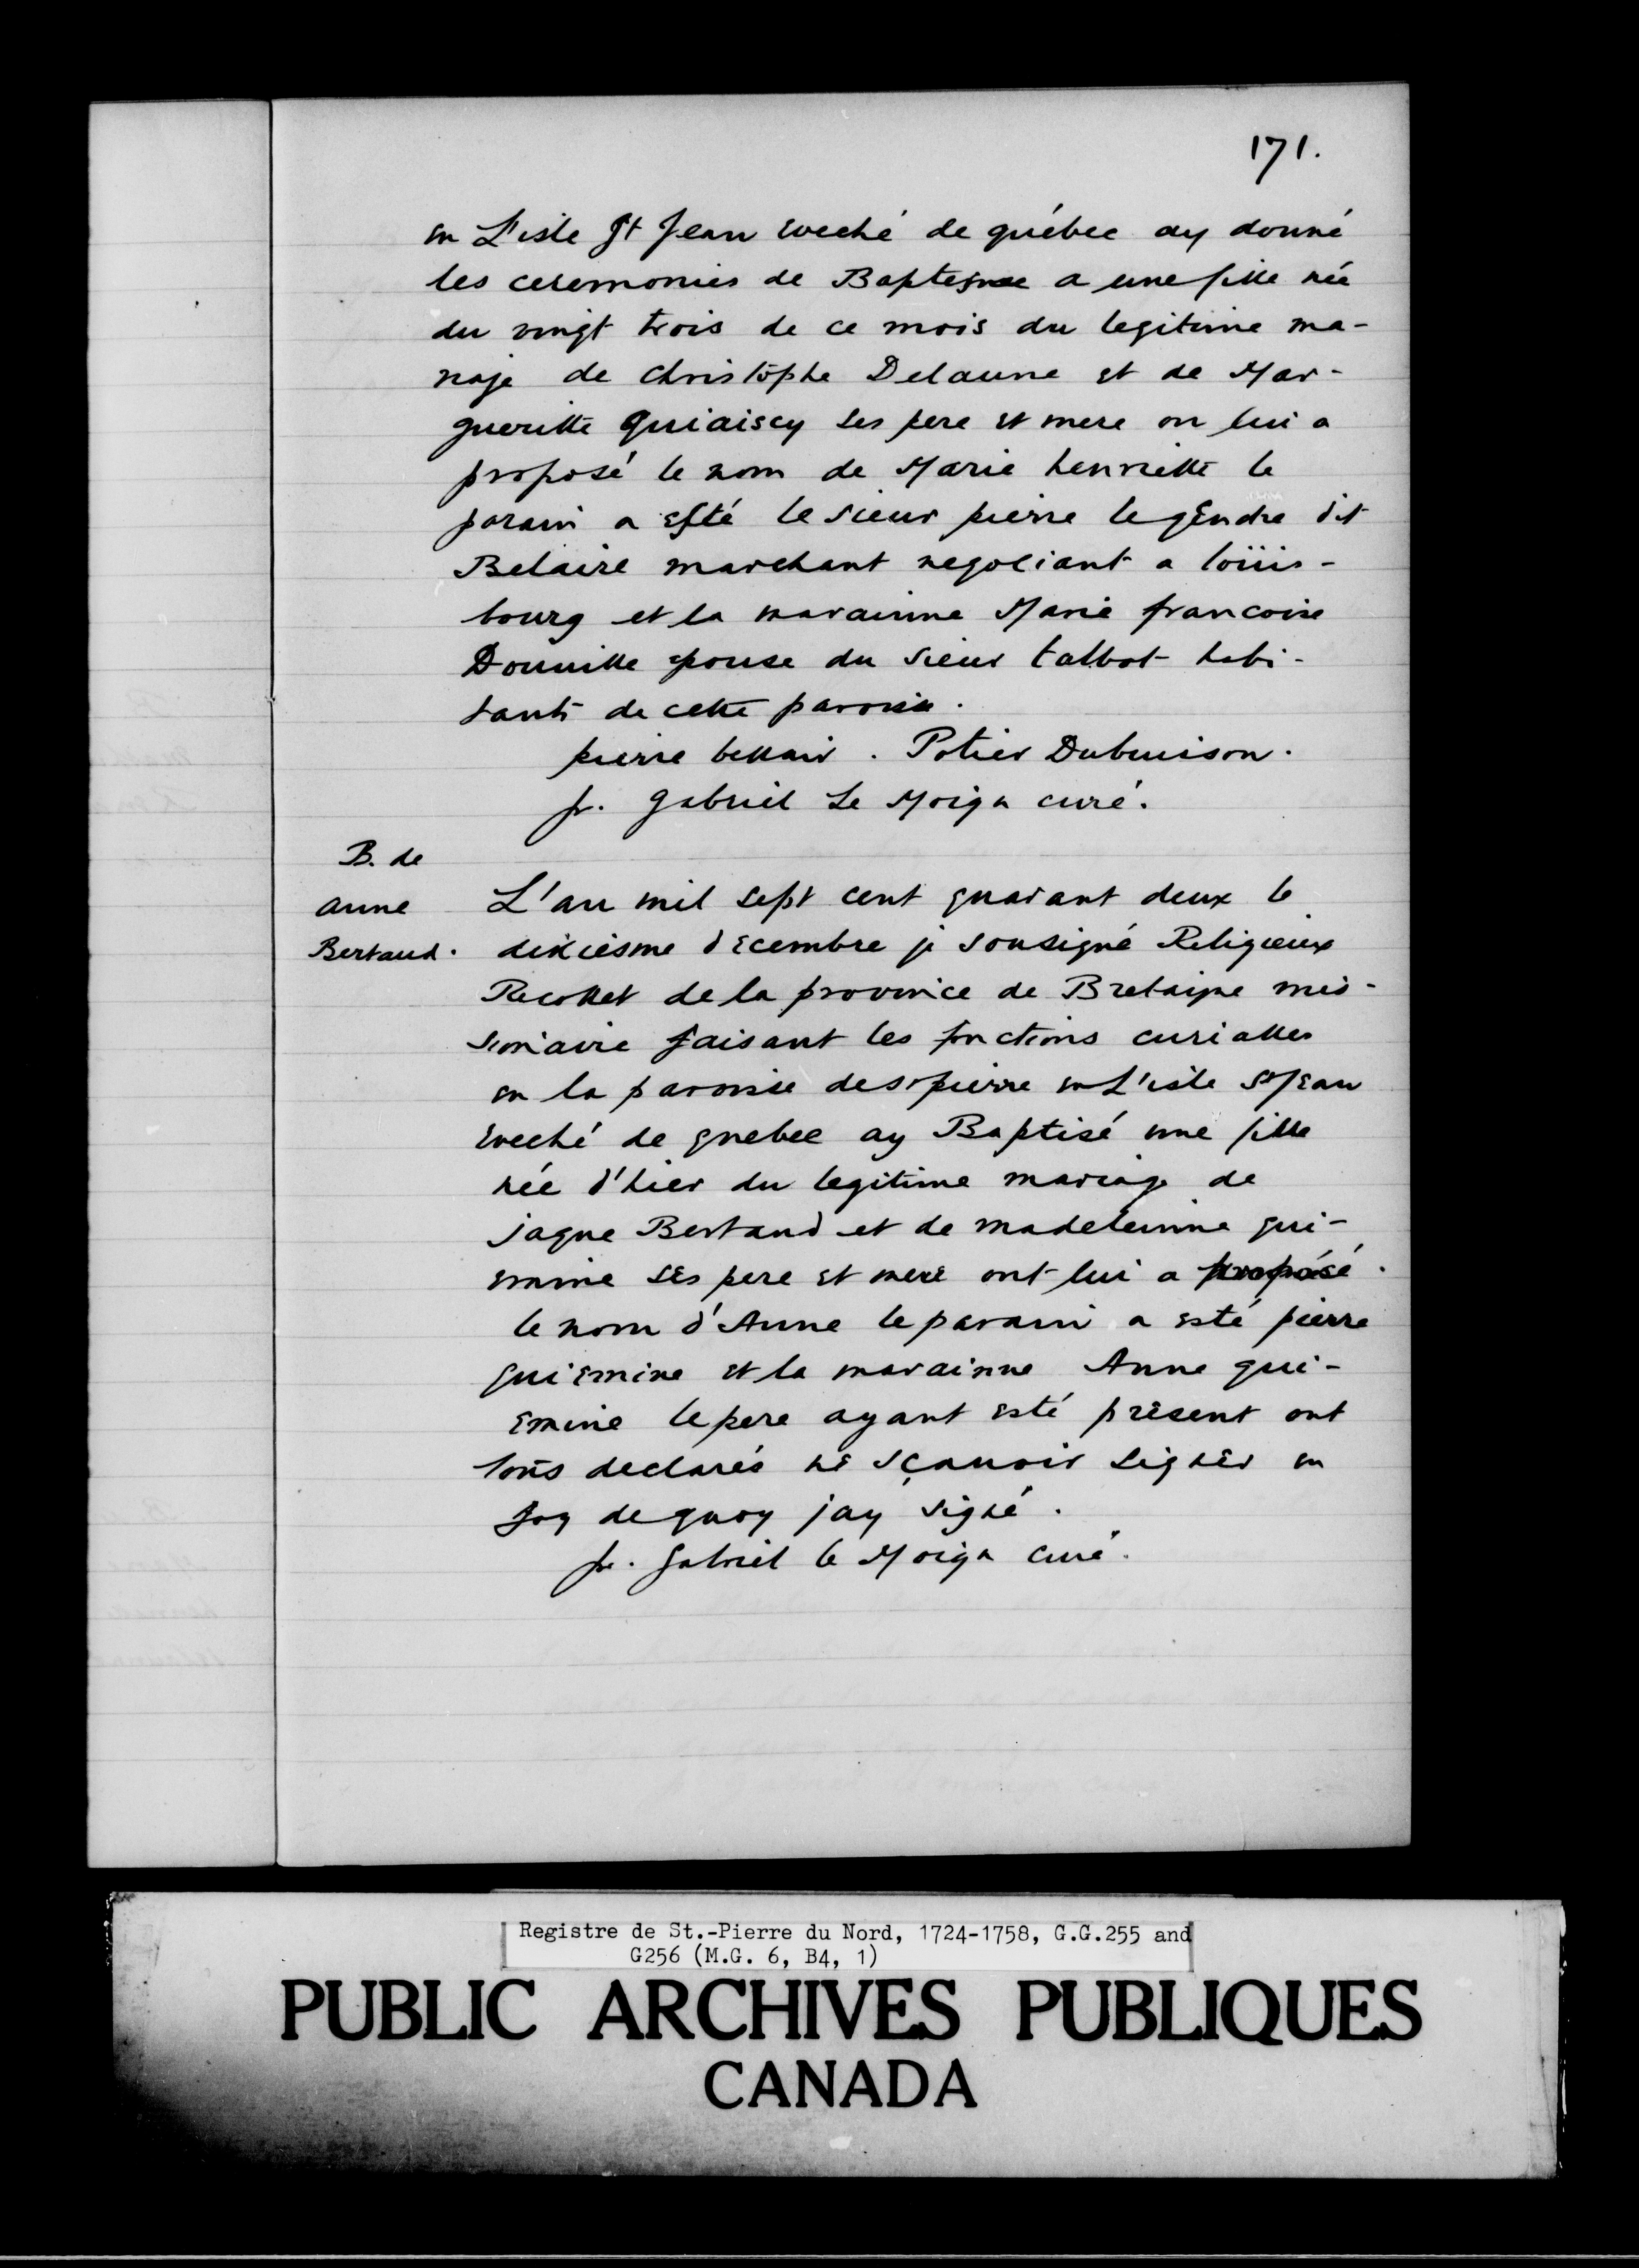 171.
en L'isle St Jean eveché de québec ay donné
les ceremonies de Baptesme a une fille née
du vingt trois de ce mois du legitime ma-
riage de christophe Delaune et de Mar-
gueritte quiaiscy ses pere et mere on lui a
proposé le nom de Marie henriette le
parain a esté le sieur pierre legendre dit
Belaire marchant negociant a loüis-
bourg et la marainne Marie francoise
Douville epouse du sieur talbot habi-
tants de cette paroisse.
pierre bellair. Potier Dubuisson.
fr. gabriel Le Moign curé.
B. de
anne
Bertaud.
L'an mil sept cent quarant deux le
dixiesme decembre je sousigné Religieux
Recollet de la province de Bretaigne mis-
sionaire faisant les fonctions curialles
en la paroisse de st pierre en L'isle St Jean
eveché de quebec ay Baptisé une fille
née d'hier du legitime mariage de
jaque Bertaud et de madeleinne gui-
emine ses pere et mere ont lui a proposé
le nom d'Anne le parain a esté pierre
guiemine et la marainne Anne gui-
emine le pere ayant esté présent ont
tous declarés ne sçauoir signer en
foy de quoy jay signé.
fr. gabriel le Moign curé.
Registre de St.-Pierre du Nord, 1724-1758, G.G.255 and
G256 (M.G. 6, B4, 1)
PUBLIC ARCHIVES PUBLIQUES
CANADA